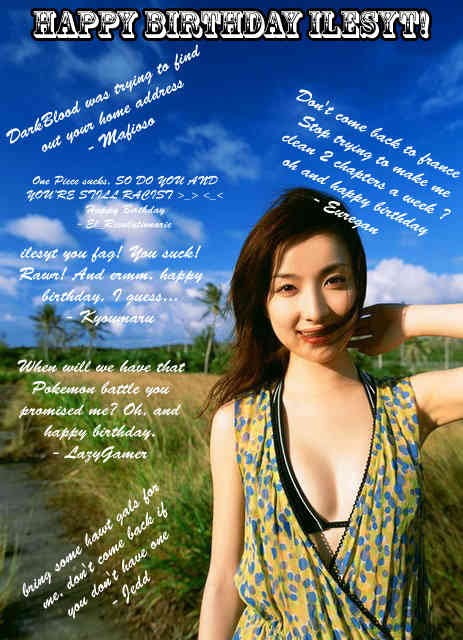 HAPPY BIRTHDAY ILESYT!
DarkBlood was trying to find
out your home address
- Mafioso
Don't come back to france
Stop trying to make me
clean 2 chapters a week ?
oh and happy birthday
- Euregan
One Piece sucks. SO DO YOU AND
YOU'RE STILL RACIST >_> <_<
Happy Birthday
- El_Revolutionarie
ilesyt you fag! You suck!
Rawr! And ermm, happy
birthday, I guess...
- Kyoumaru
When will we have that
Pokemon battle you
promised me? Oh, and
happy birthday.
- LazyGamer
bring some hawt gals for
me, don't come back if
you don't have one
- Jedd